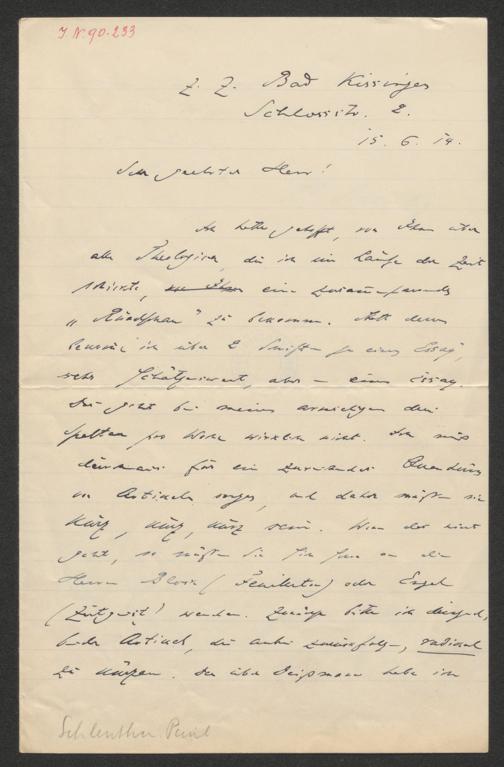 I N 90.233
z. Z. Bad Kissingen
Schlossstr. 2.
15. 6. 14.
Sehr geehrter Herr!
Ich hatte gehofft, von Ihnen über
alle Theologica, die ich im Laufe der Zeit
schickte, eine zusammenfassende
„Rundschau" zu bekommen. Statt dessen
bekomme ich über 2 Schriften je einen Essay,
sehr schätzenswert, aber – einen Essay.
Das geht bei meinen armseligen drei
Spalten pro Woche wirklich nicht. Ich muss
für ein
von Artikeln sorgen, und daher müssen sie
kurz, kurz, kurz sein. Wenn das nicht
geht, so müssten Sie sich an die
Herren Block (Feuilleton) oder Engel
(Zeitgeist) wenden. bitte ich dringend,
beide Artikel, die anbei zurückfolgen, radikal
zu kürzen. Den über Deißmann habe ich
Schlenther Paul